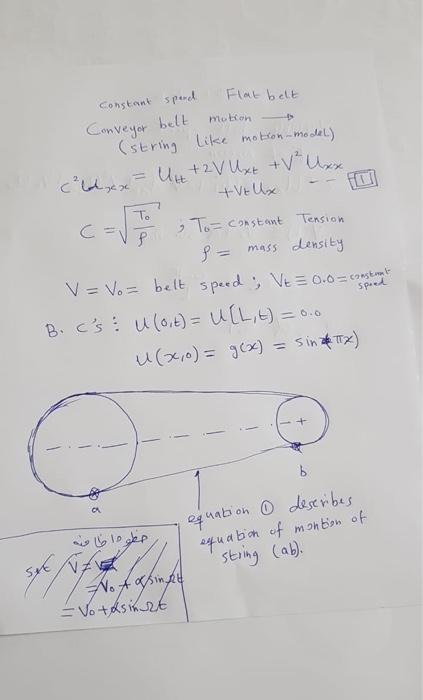 Constant speed Flat belt
Conveyor belt motion →
(string like motion-model)
C²Uxx = Utt + 2V Uxt + V² Uxx
+ Vt Ux --- 1
C = √(T₀/ρ) ; T₀ = constant Tension
ρ = mass density
V = V₀ = belt speed ; Vt ≡ 0.0 = constant
speed
B. C's : U(0,t) = U(L,t) = 0.0
U(x,0) = g(x) = sin(πx)
+
a
b
equation ① describes
equation of motion of
string (ab).
set V =
= V₀ + α sin Ωt
= V₀ + α sin Ωt